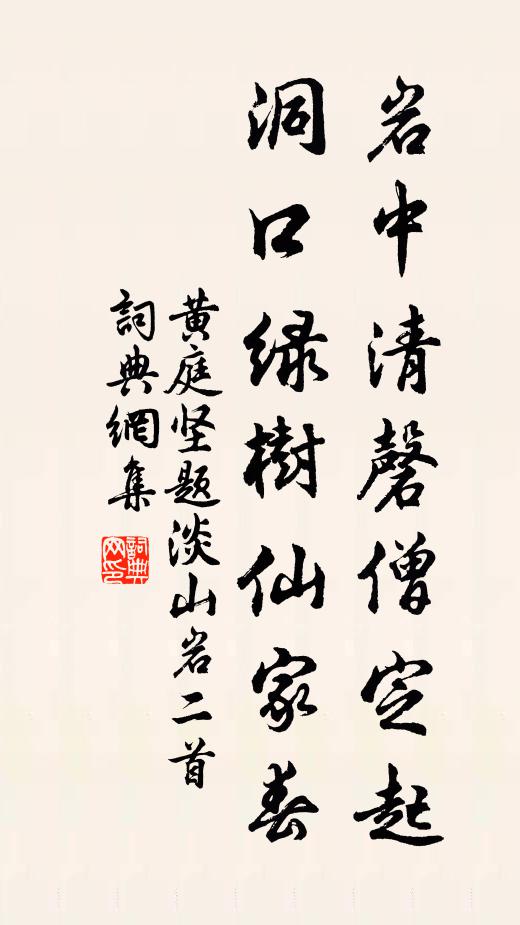 岩中清磬僧定起
洞口绿樹仙家春
黄庭坚题淡山岩二首
詞典網集
詞典网印